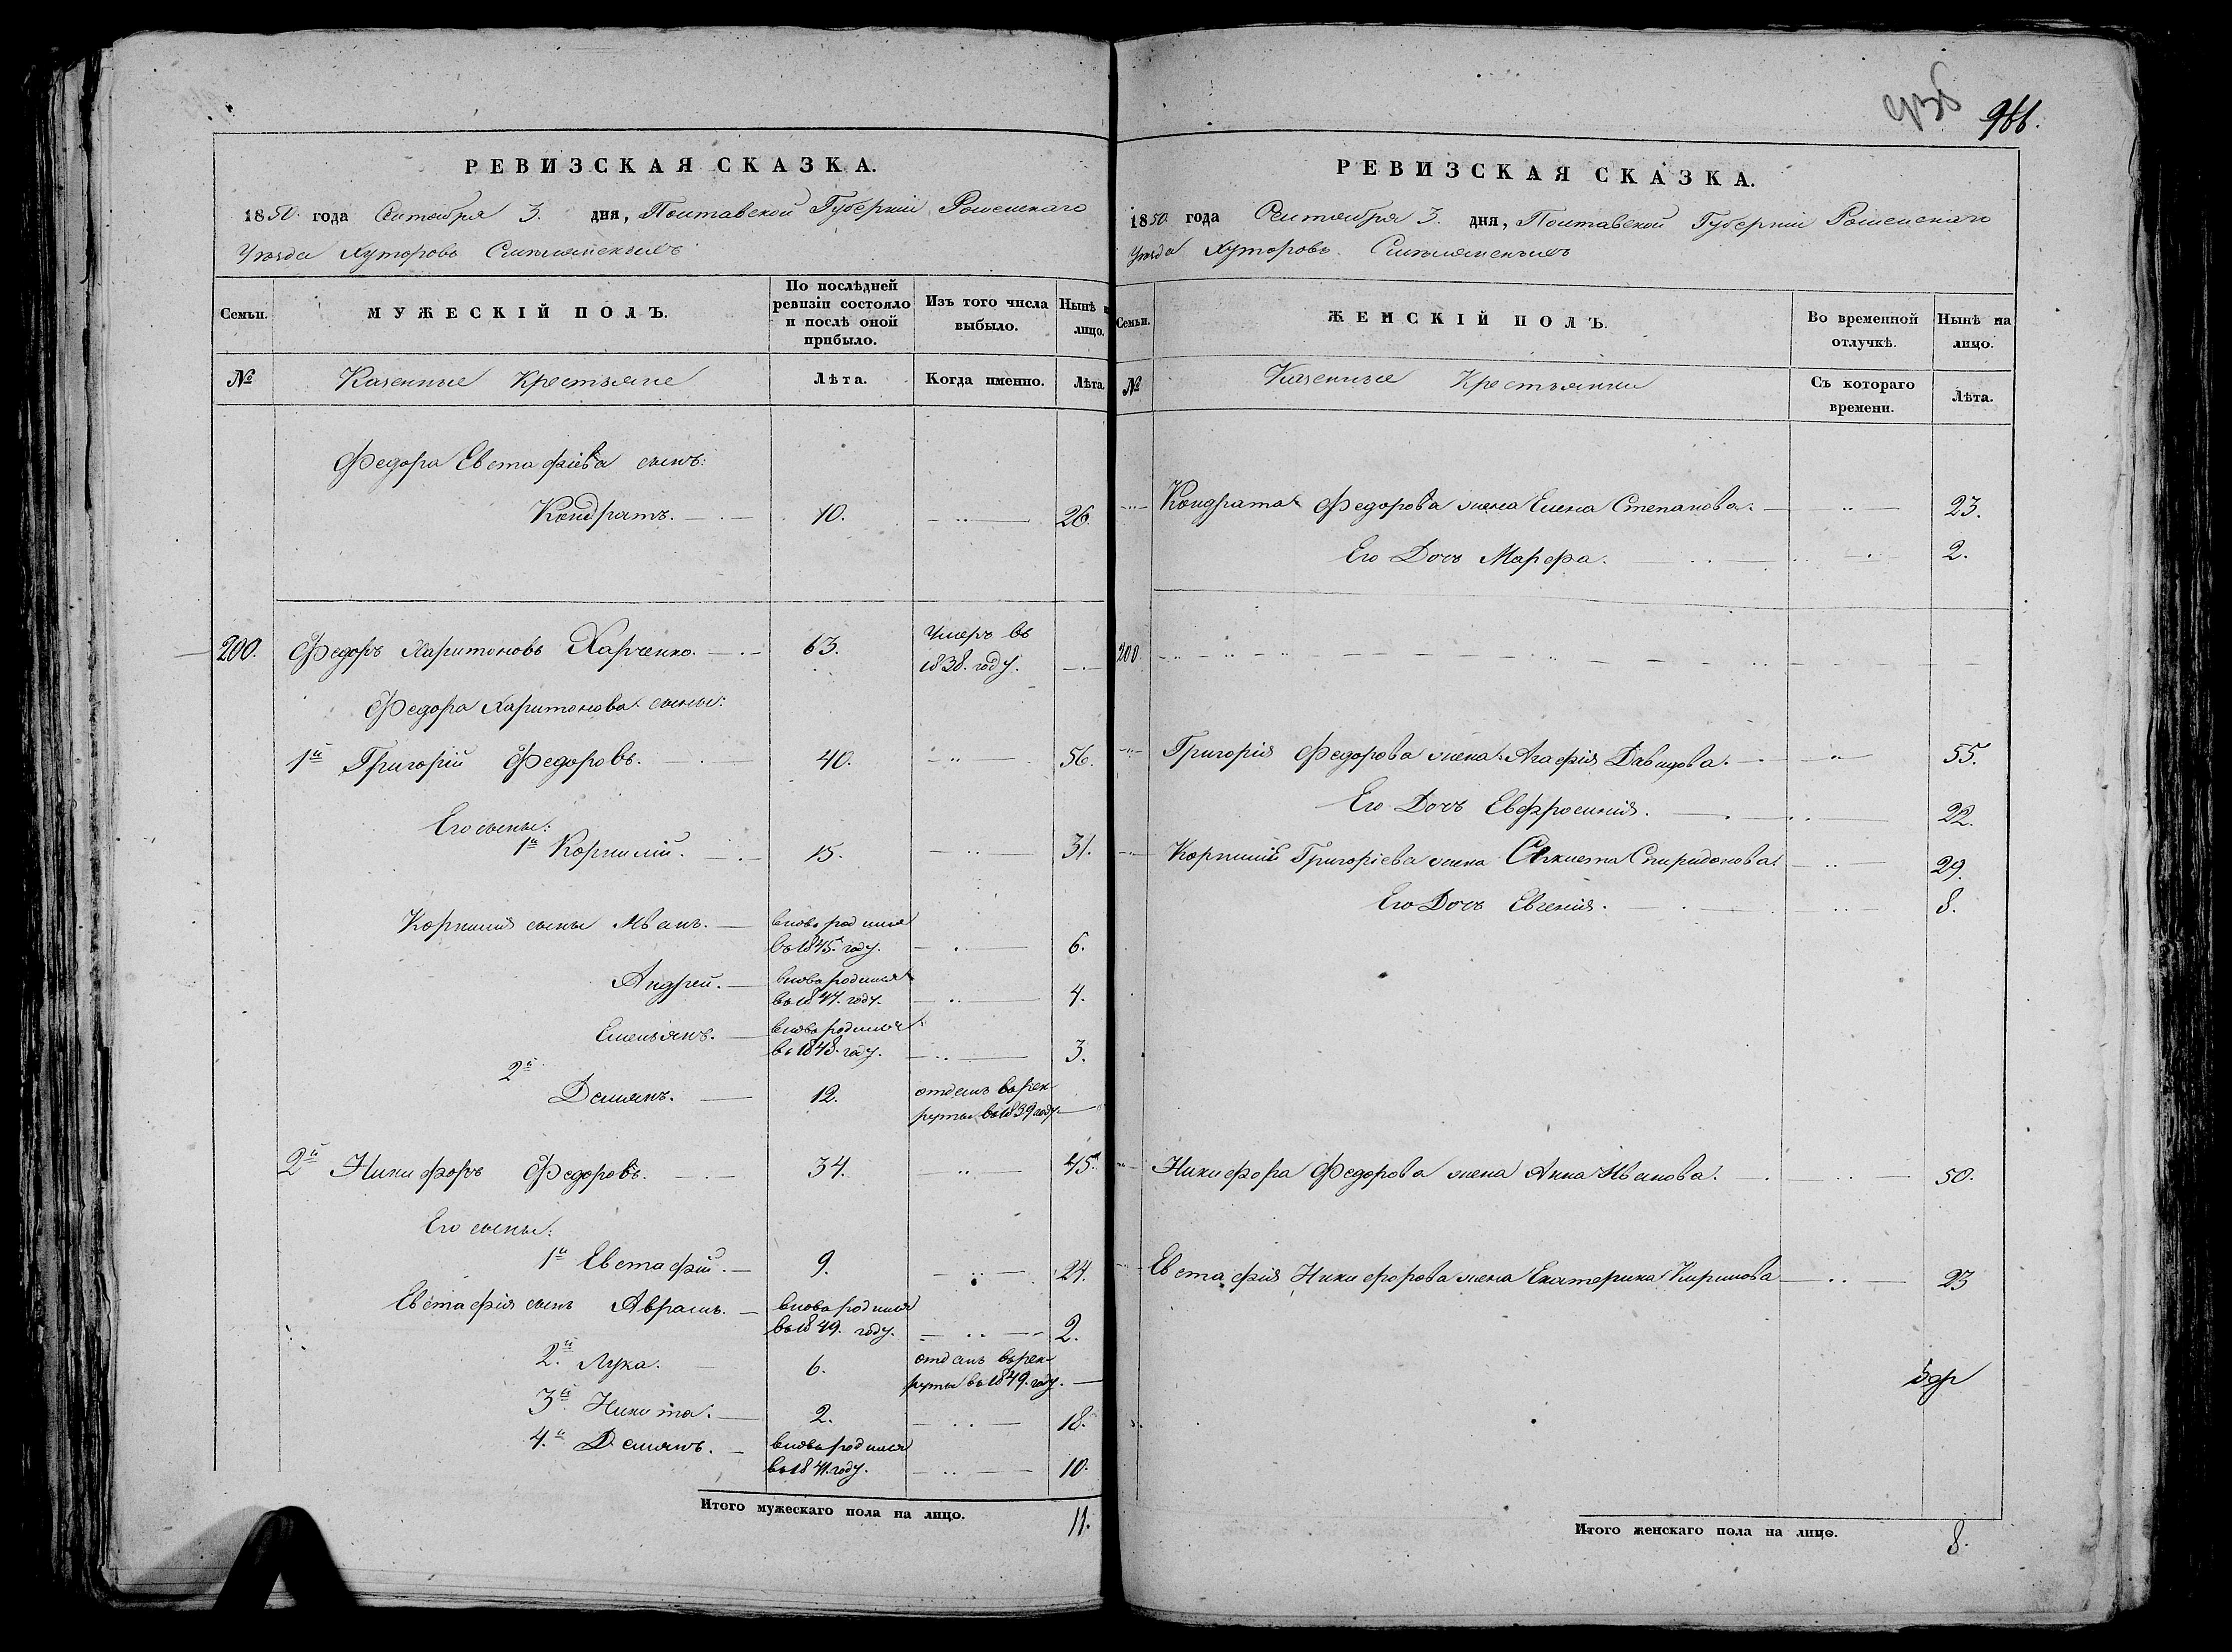 966.
РЕВИЗСКАЯ СКАЗКА.
1850. года Сентября 3. дня, Полтавской Губерніи Роменскаго
Уѣзда Хуторовъ
Семьи.
МУЖЕСКІЙ ПОЛЪ.
По послѣдней ревизіи состояло и послѣ оной прибыло.
Изъ того числа выбыло.
Нынѣ на лицо.
№
Казенные Крестьяне
Лѣта.
Когда именно.
Лѣта.
Федора Евстафіева сынъ:
Кондратъ. 10. 26.
200. Федоръ Харитоновъ Харченко. 63. Умеръ въ
1838. году.
Федора Харитонова сыны:
1й Григорій Федоровъ. 40. 56.
Его сыны:
1й Корнилій. 15. 31.
Корнилія сыны Иванъ. вновь родился
въ 1845. году. 6.
Андрей. вновь родился
въ 1847. году. 4.
Емельянъ. вновь родился
въ 1848. году. 3.
2й
Демьянъ. 12. отданъ въ рек-
руты въ 1839 году.
2й Никифоръ Федоровъ. 34. 45.
Его сыны:
1й Евстафій. 9. 24.
Евстафія сынъ Аврамъ. вновь родился
въ 1849. году. 2.
2.й Лука. 6. отданъ въ рек-
руты въ 1849. году.
3й Никита. 2. 18.
4.й Демьянъ. вновь родился
въ 1841. году. 10.
Итого мужескаго пола на лицо. 11.
РЕВИЗСКАЯ СКАЗКА.
1850 года Сентября 3. дня, Полтавской Губерніи Роменскаго
Уѣзда Хуторовъ
Семьи.
ЖЕНСКІЙ ПОЛЪ.
Во временной отлучкѣ.
Нынѣ на лицо.
№
Казенные Крестьянки
Съ котораго времени.
Лѣта.
Кондрата Федорова жена Елена Степанова. 23.
Его Дочь Марфа. 2.
200.
Григорія Федорова жена Агафія Давидова. 55.
Его Дочь Евфросинія. 22.
Корнилія Григоріева жена Спиридонова 29.
Его Дочь Евгенія. 8.
Никифора Федорова жена Анна Иванова. 50.
Евстафія Никифорова жена Екатерина Кирилова 23
Итого женскаго пола на лицо. 8.